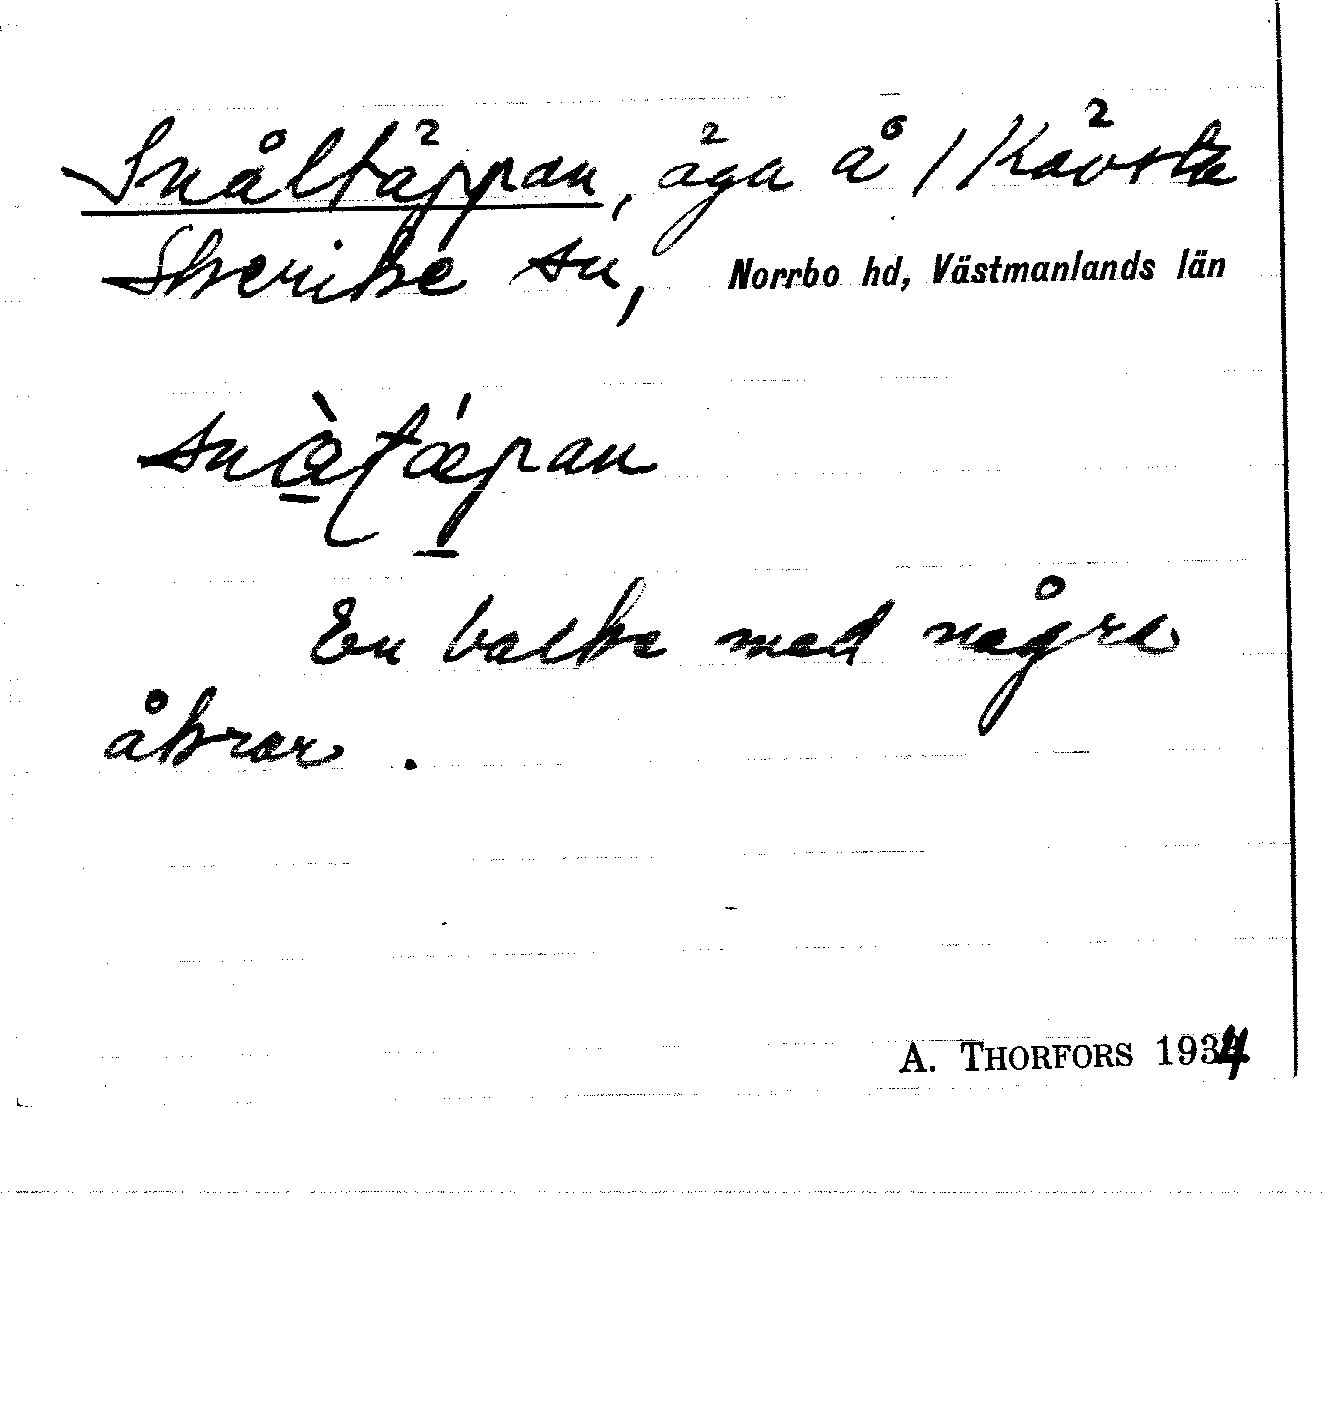 Snåltäppan, äga å 1 Kävsta
Skerike sn, Norrbo hd, Västmanlands län
En backe med några
åkrar.
A. THORFORS 1934